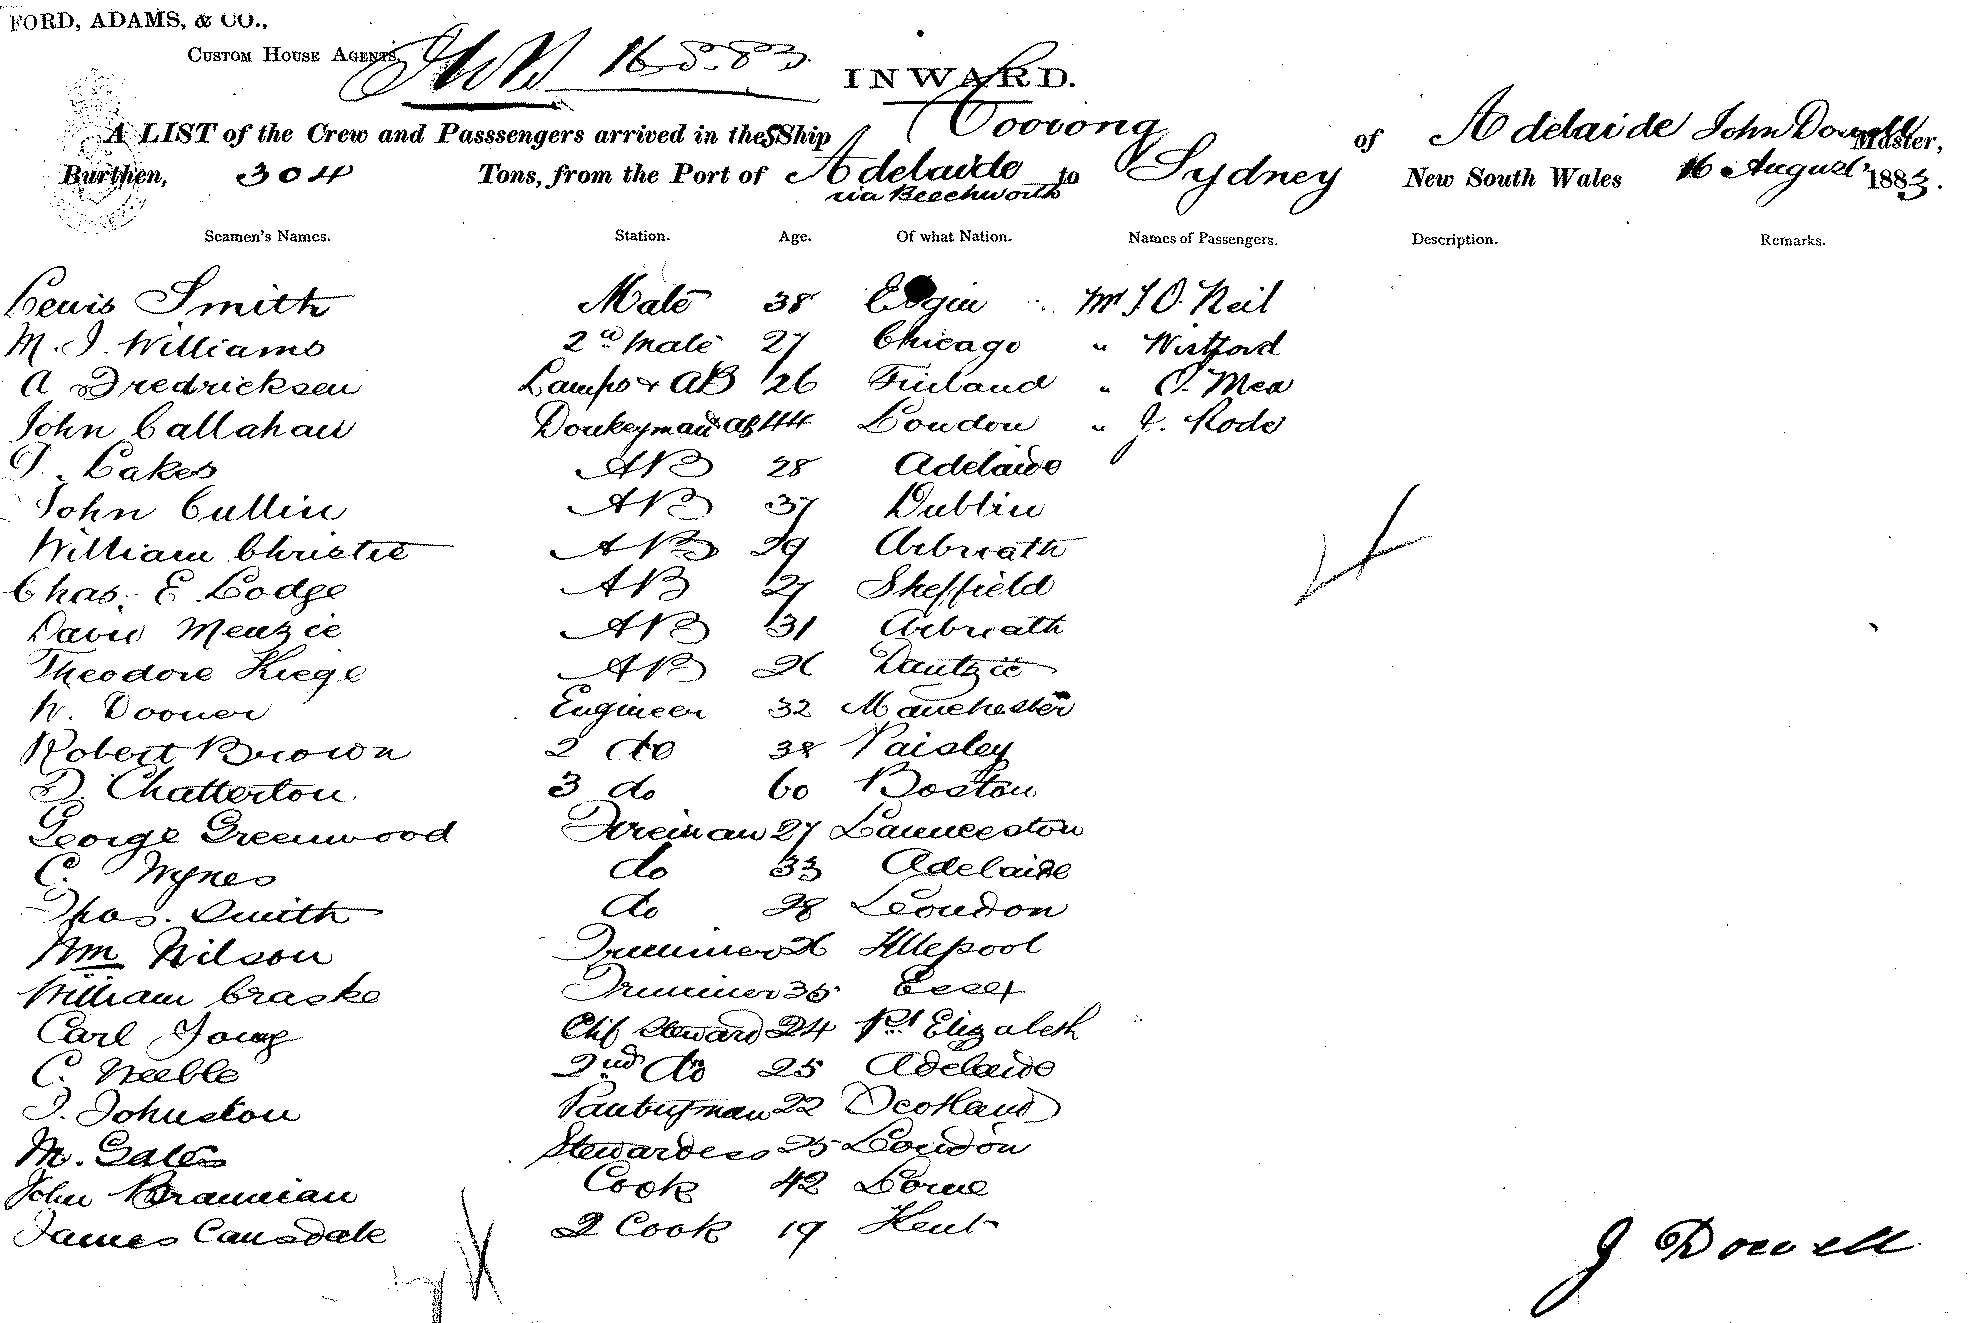 FORD, ADAMS, & CO.,
CUSTOM HOUSE AGENTS.
16.8.83
INWARD.
A LIST of the Crew and Passsengers arrived in the SShip Coorong of Adelaide John Dowell Master,
Burthen, 304 Tons, from the Port of Adelaide to Sydney New South Wales 16 August 1883.
via Beechworth
Seamen's Names. Station. Age. Of what Nation. Names of Passengers. Description. Remarks.
Lewis Smith Mate 38 Elgin Mr J O. Neil
M. J. Williams 2d Mate 27 Chicago " Wistford
A Fredricksen Lamps & AB 26 Finland " O. Mea
John Callahan Donkeyman & AB 44 London " J. Rode
T. Lakes AB 28 Adelaide
John Cullin AB 37 Dublin
William Christie AB 29 Arbroath
Chas. E. Lodge AB 27 Sheffield
David Menzie AB 31 Arbroath
Theodore Kiege AB 26 Dantzic
W. Dooner Engineer 32 Manchester
Robert Brown 2 do 38 Paisley
D. Chatterton 3 do 60 Boston
George Greenwood Fireman 27 Launceston
C. Wynes do 33 Adelaide
Thos. Smith do 28 London
Wm Wilson Trimmer 26
William Craske Trimmer 35 Essex
Carl Young Chif Steward 24 Pt Elizabeth
C. Neeble 2nd do 25 Adelaide
J. Johnston Pantryman 22 Scotland
M. Gates Stewardess 25 London
John Brannian Cook 42
James Cansdale 2 Cook 19 Kent
J Dowell